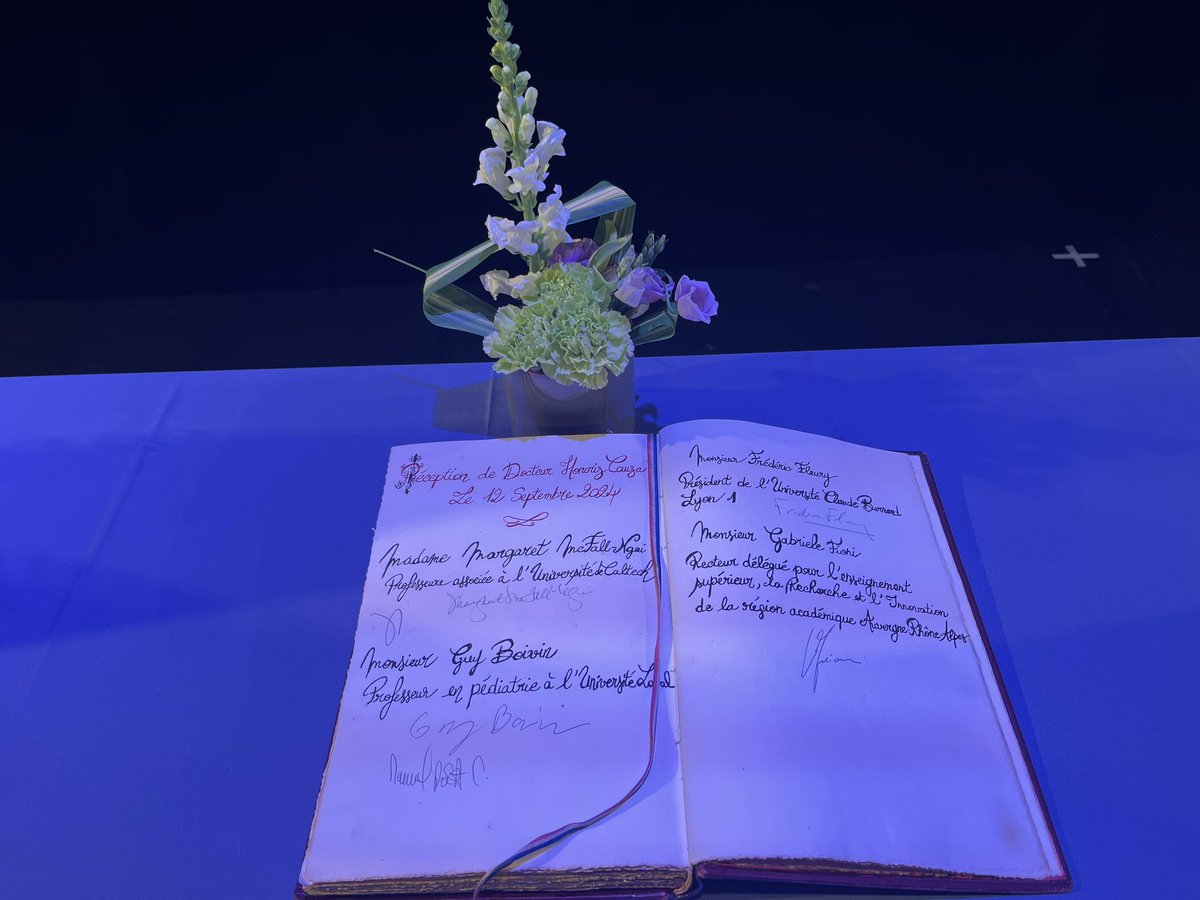 Réception de Docteur Honoris Causa
Le 12 Septembre 2024
Madame Margaret McFall-Ngai
Professeure associée à l'Université de Caltech
Margaret McFall-Ngai
Monsieur Guy Boivin
Professeur en pédiatrie à l'Université Laval
Guy Boivin
Monsieur Frédéric Fleury
Président de l'Université Claude Bernard
Lyon 1
Monsieur Gabriele Fioni
Recteur délégué pour l'enseignement
supérieur, la Recherche et l'Innovation
de la région académique Auvergne Rhône Alpes